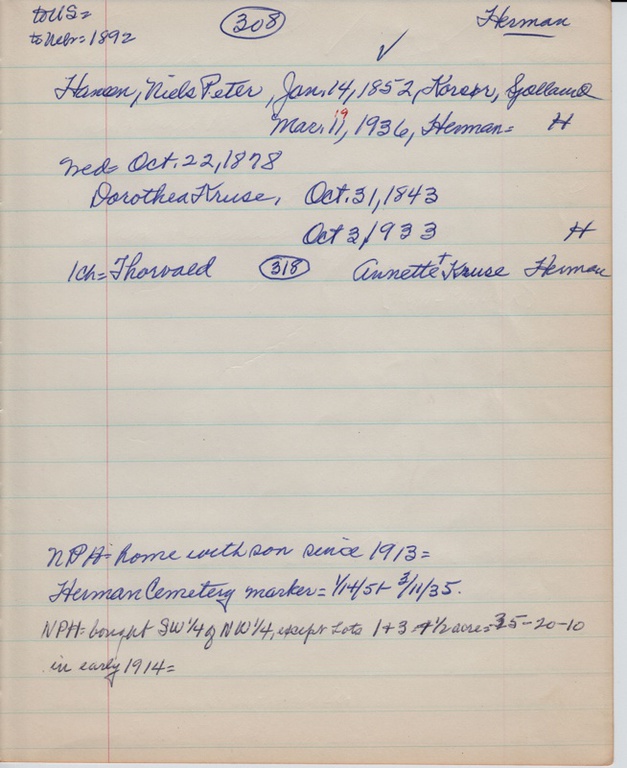 to US=
to Nebr=1892
308
Herman
✓
Hansen, Niels Peter, Jan. 14, 1852, Korsor, Sjolland
19
Mar. 11, 1936, Herman= H
wed= Oct. 22, 1878
Dorothea Kruse, Oct. 31, 1843
Oct 3, 1933 H
1ch= Thorvald 318 Annette + Kruse Herman
NPH= home with son since 1913=
Herman Cemetery marker= 1/14/51 3/11/35.
NPH= bought SW 1/4 of NW 1/4, except Lots 1+3 + 1/2 acre= 35-20-10
in early 1914=